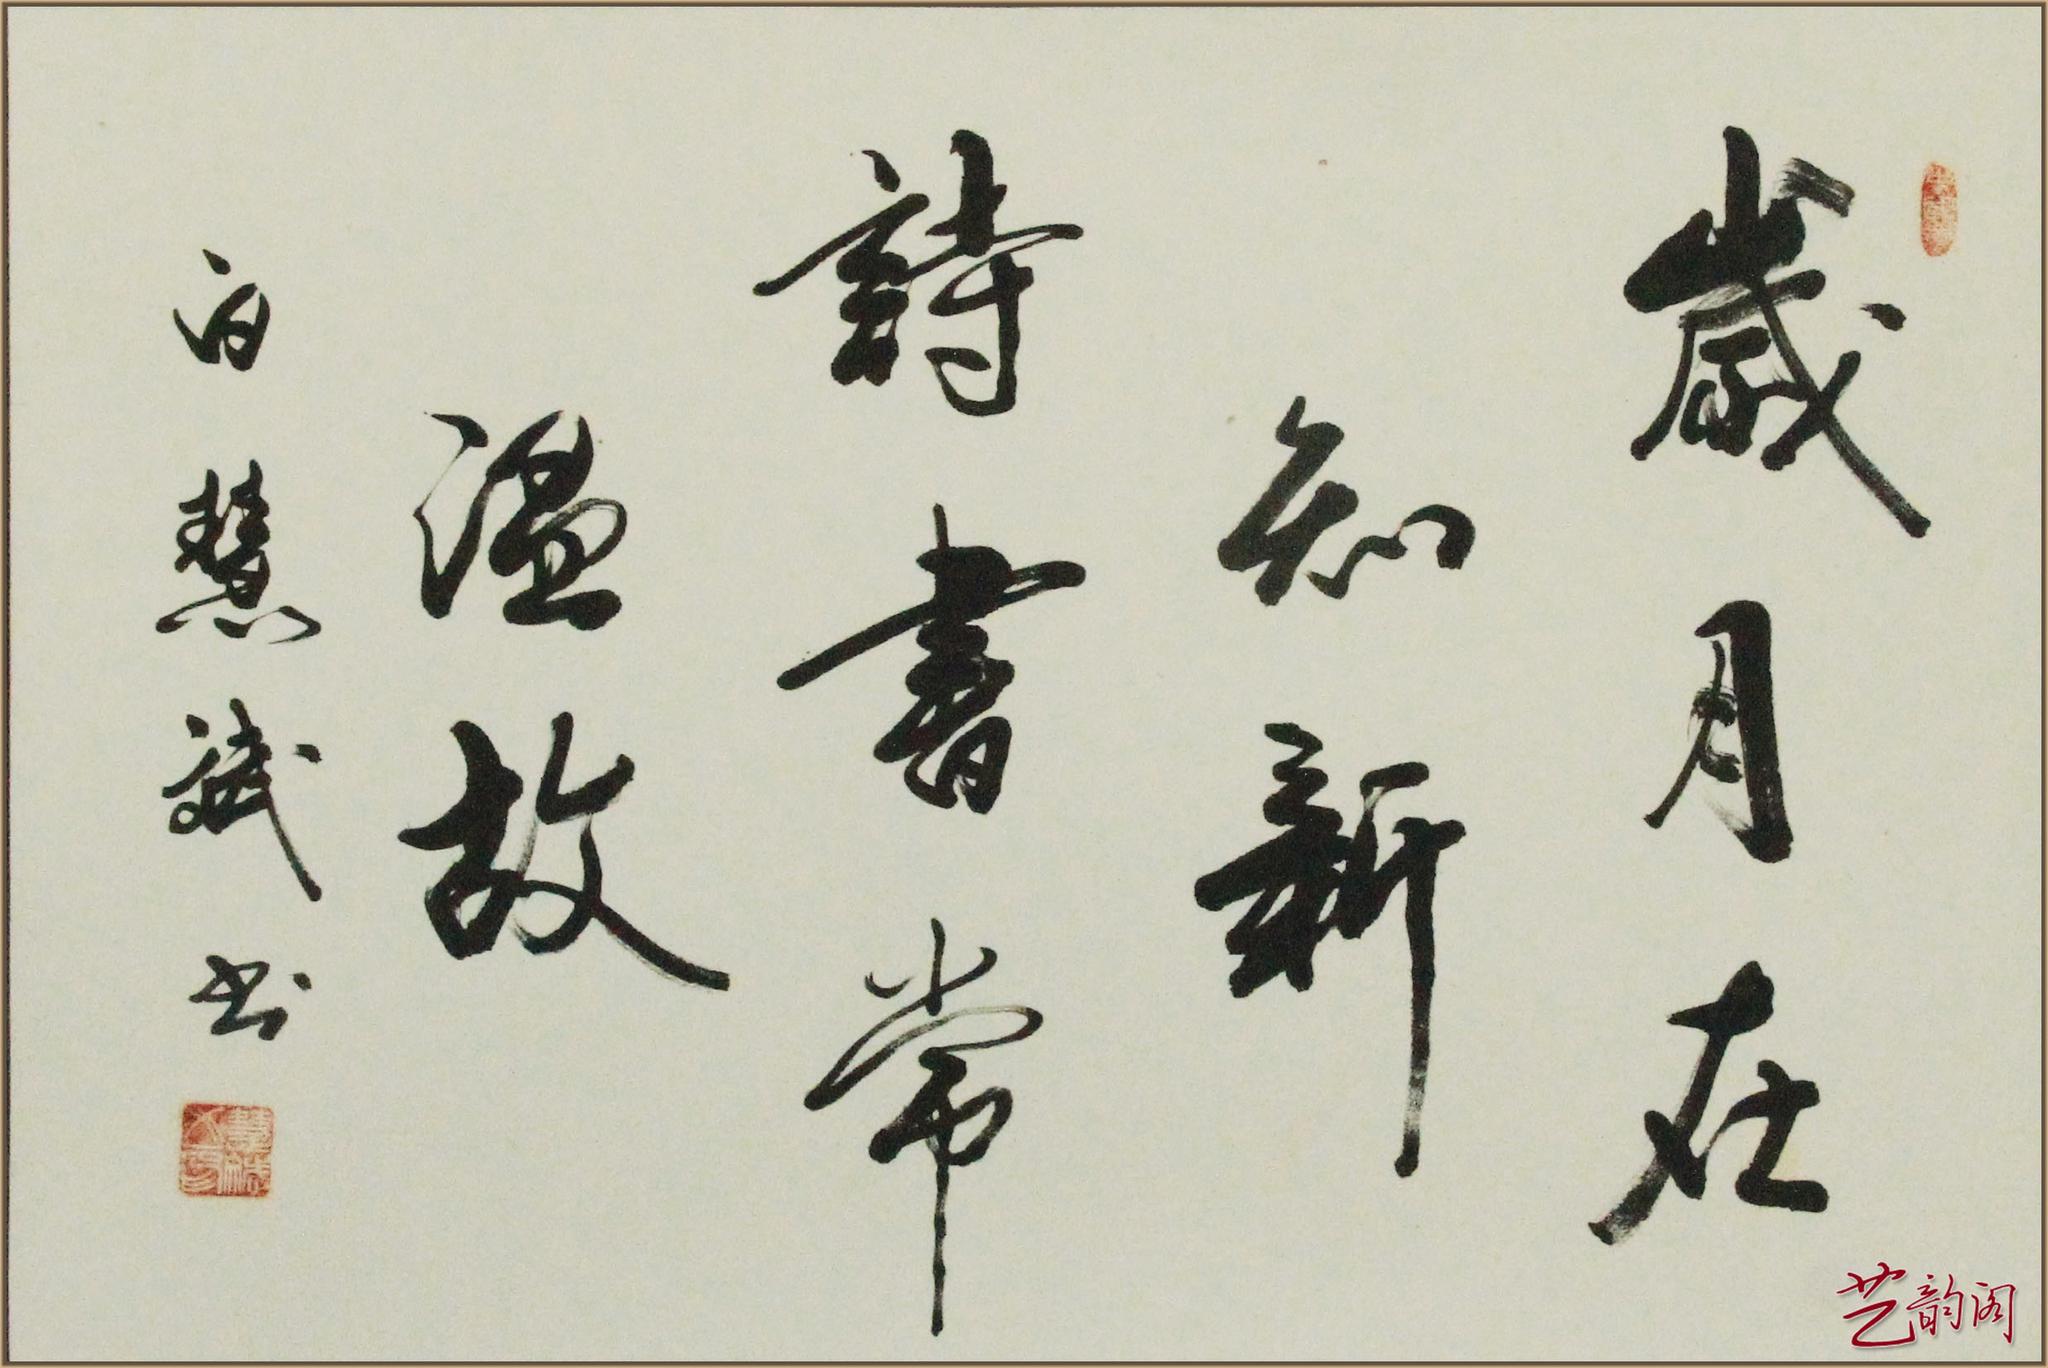 歲月在
知新
詩書常
溫故
白慧斌书
艺韵阁